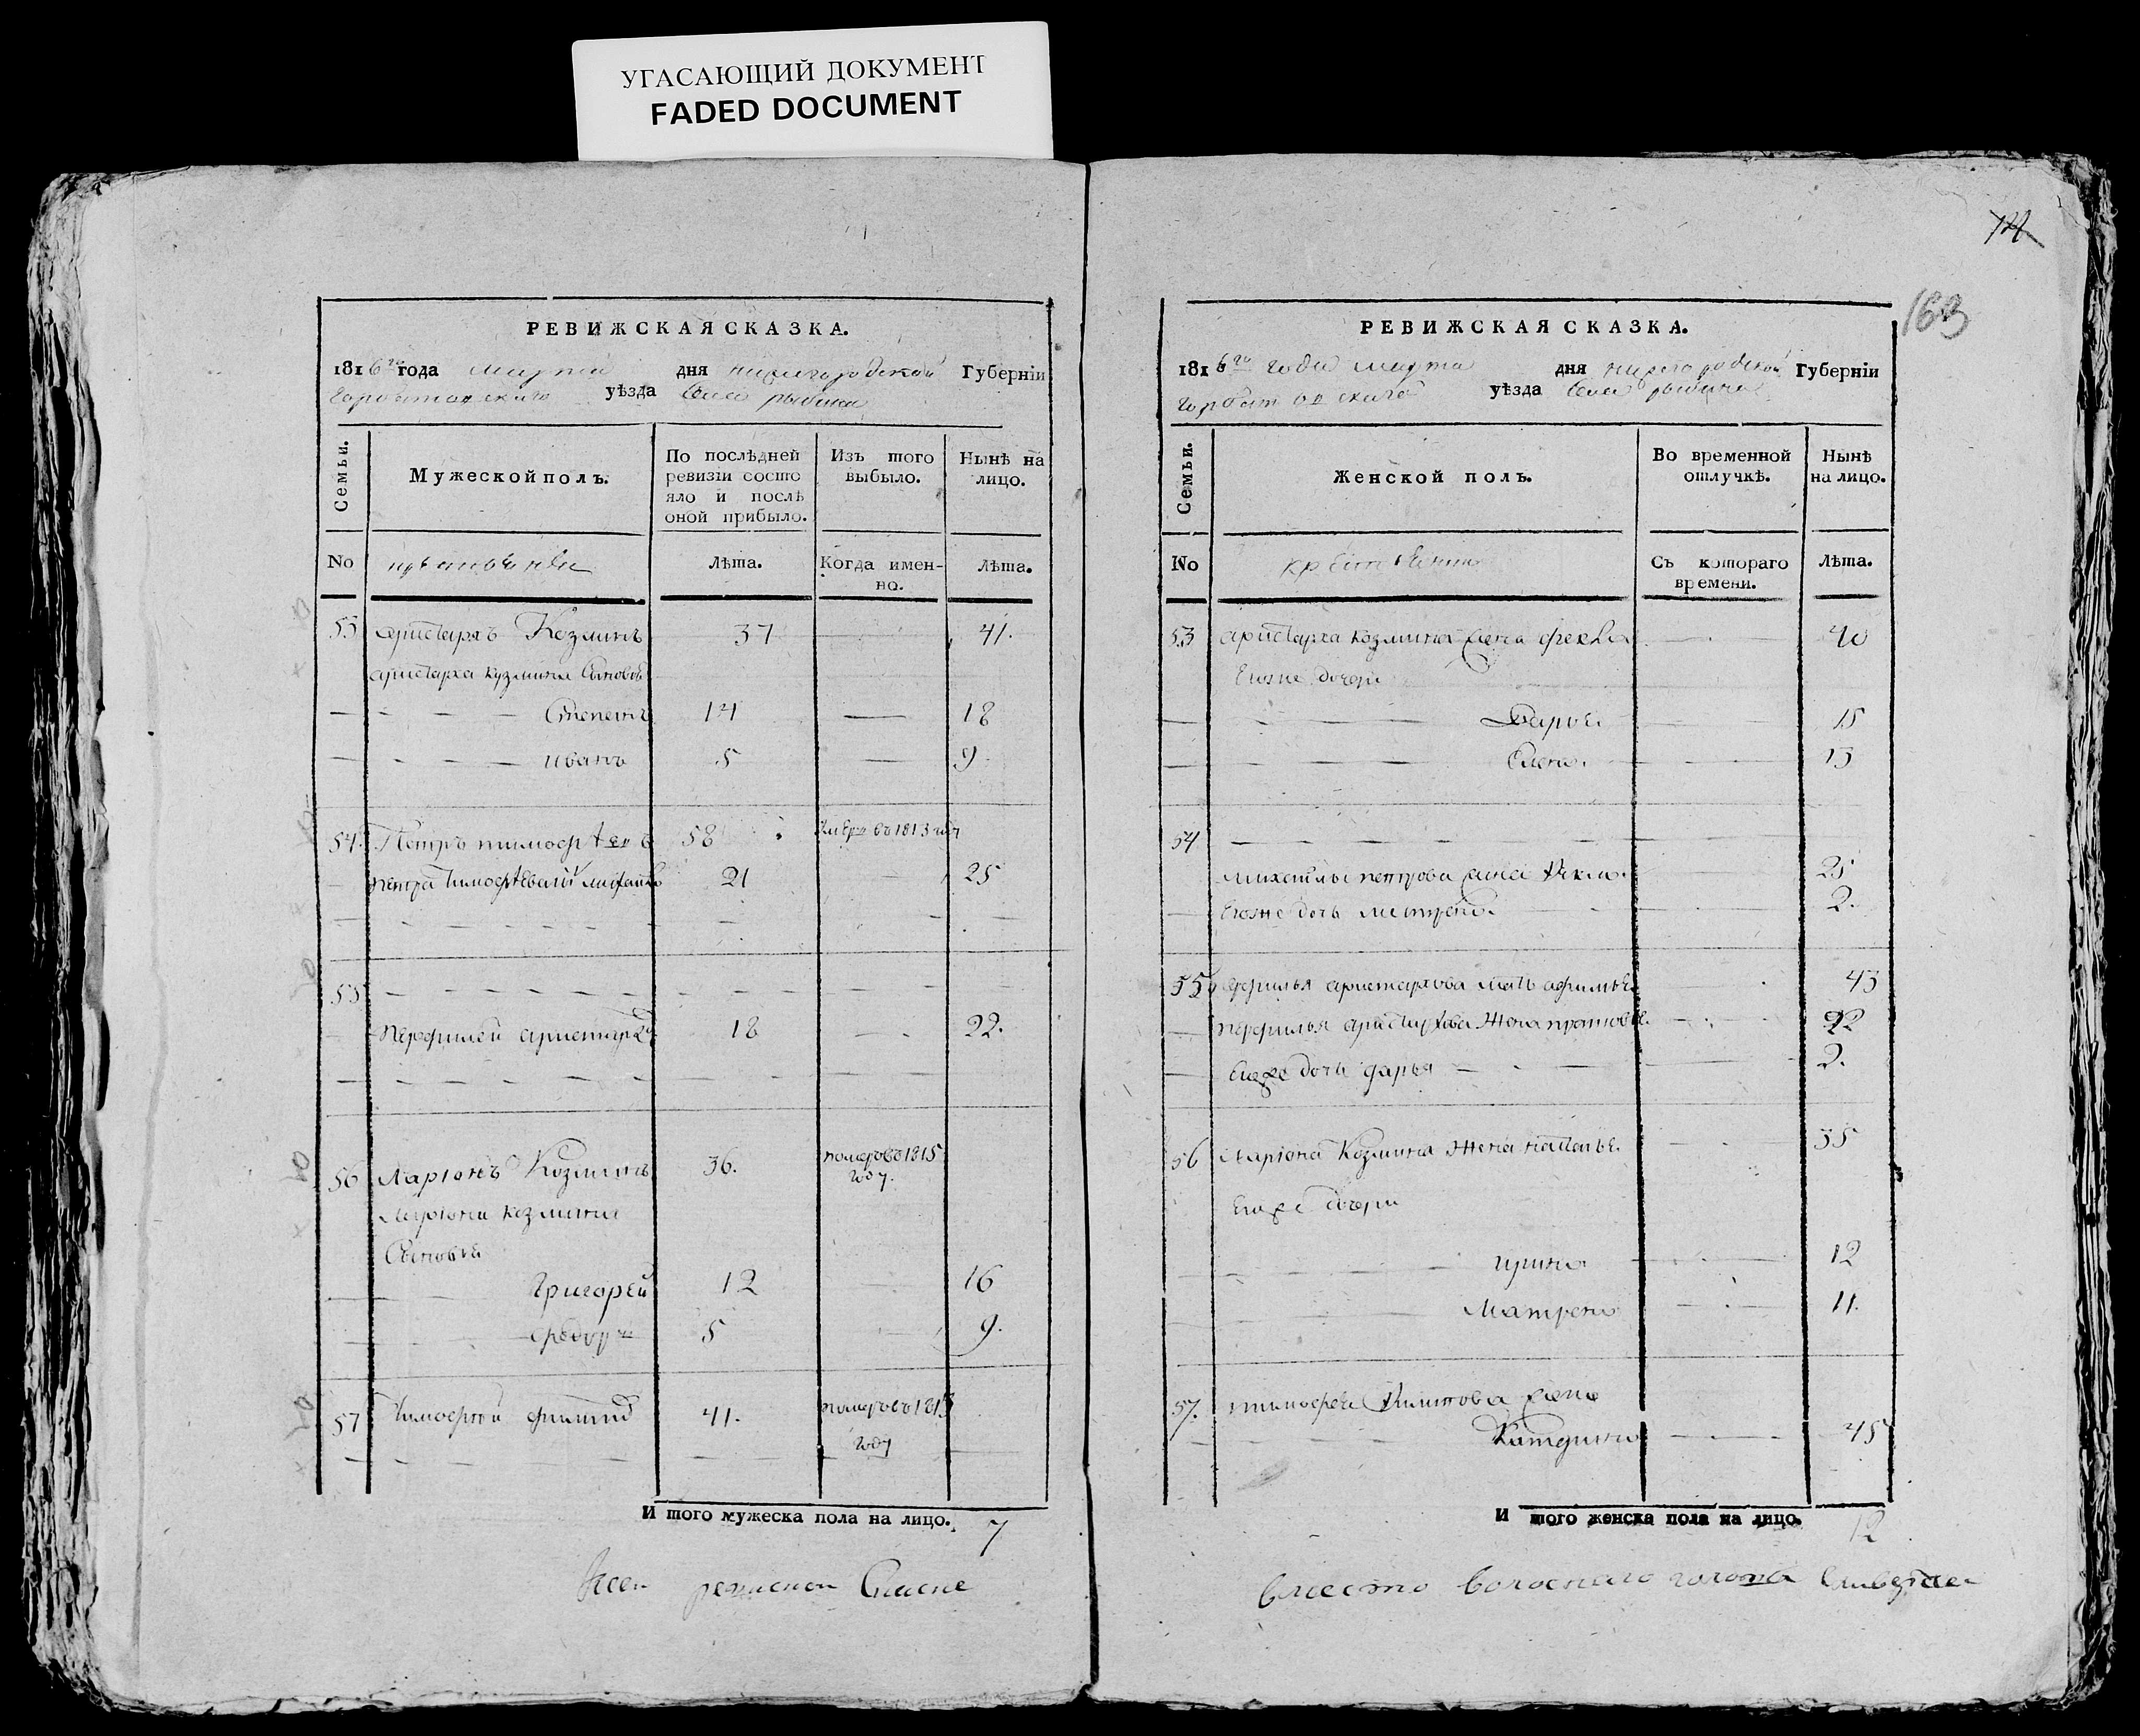 УГАСАЮЩИЙ ДОКУМЕНТ
FADED DOCUMENT
РЕВИЖСКАЯ СКАЗКА.
1816 го года марта дня нижегородской Губерніи
Горбатовскаго уѣзда села
Семьи.
Мужеской полъ.
По послѣдней ревизіи состояло и послѣ оной прибыло.
Изъ того выбыло.
Нынѣ на лицо.
No
лѣта.
Когда именно.
лѣта.
53 аристархъ Козминъ 37 41.
аристарха кузмина сыновья
Степанъ 14 18
иванъ 5 9.
54. Петръ тимофѣевъ 58 умеръ въ 1813 году
петра тимофѣева сынъ 21 25
55
перфилей аристарховъ 18 22.
56 Ларіонъ Козминъ 36. померъ въ 1815 году.
Ларіона козмина
Сыновья
Григорей 12 16
Федоръ 5 9.
57 Тимофей 41. померъ въ 1813
году
И того мужеска пола на лицо. 7
ревиской Скаске
163
РЕВИЖСКАЯ СКАЗКА.
1816 го года марта дня нижегородской Губерніи
Горбатовскаго уѣзда села
Семьи.
Женской полъ.
Во временной отлучкѣ.
Нынѣ на лицо.
No
крестьянки
Съ котораго времени.
лѣта.
53 аристарха козмина жена фекла 40
Егоже дочери
Дарья 15
Елена. 13
54
михаилы петрова жена 25
Егоже дочь матрена. 2.
55 перфилья аристархова мать афимья 43
перфилья аристархова жена 22
Егоже дочь дарья 2.
56 Ларіона Козмина жена наталья. 35
Егоже дочери
ирина 12
Матрена 11.
57. тимофея жена
Катерина 45
И того женска пола на лицо. 12
вместо волоснаго голова